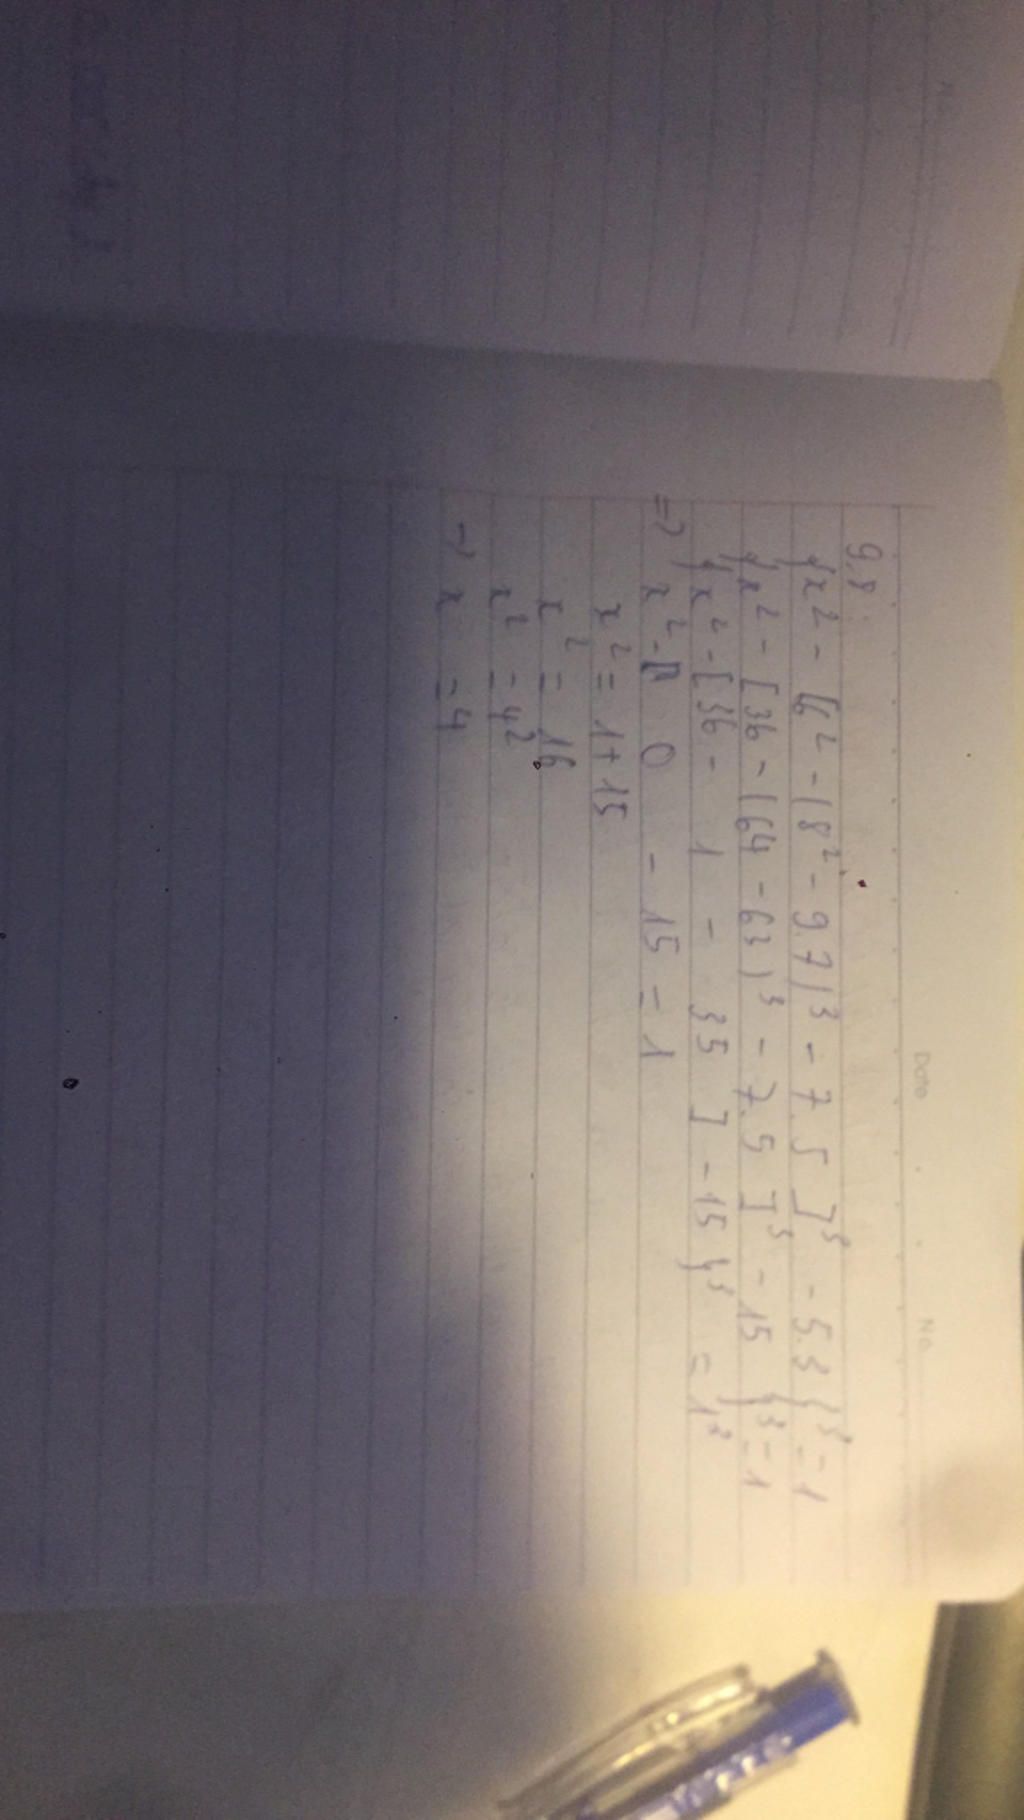 Date No.
9.8.
{x² - [6² - (8² - 9.7)³ - 7.5]³ - 5.3}³ = 1
{x² - [36 - (64 - 63)³ - 7.5]³ - 15}³ = 1
{x² - [36 - 1 - 35] - 15}³ = 1³
=> x² - 0 - 15 = 1
x² = 1 + 15
x² = 16
x² = 4²
-> x = 4